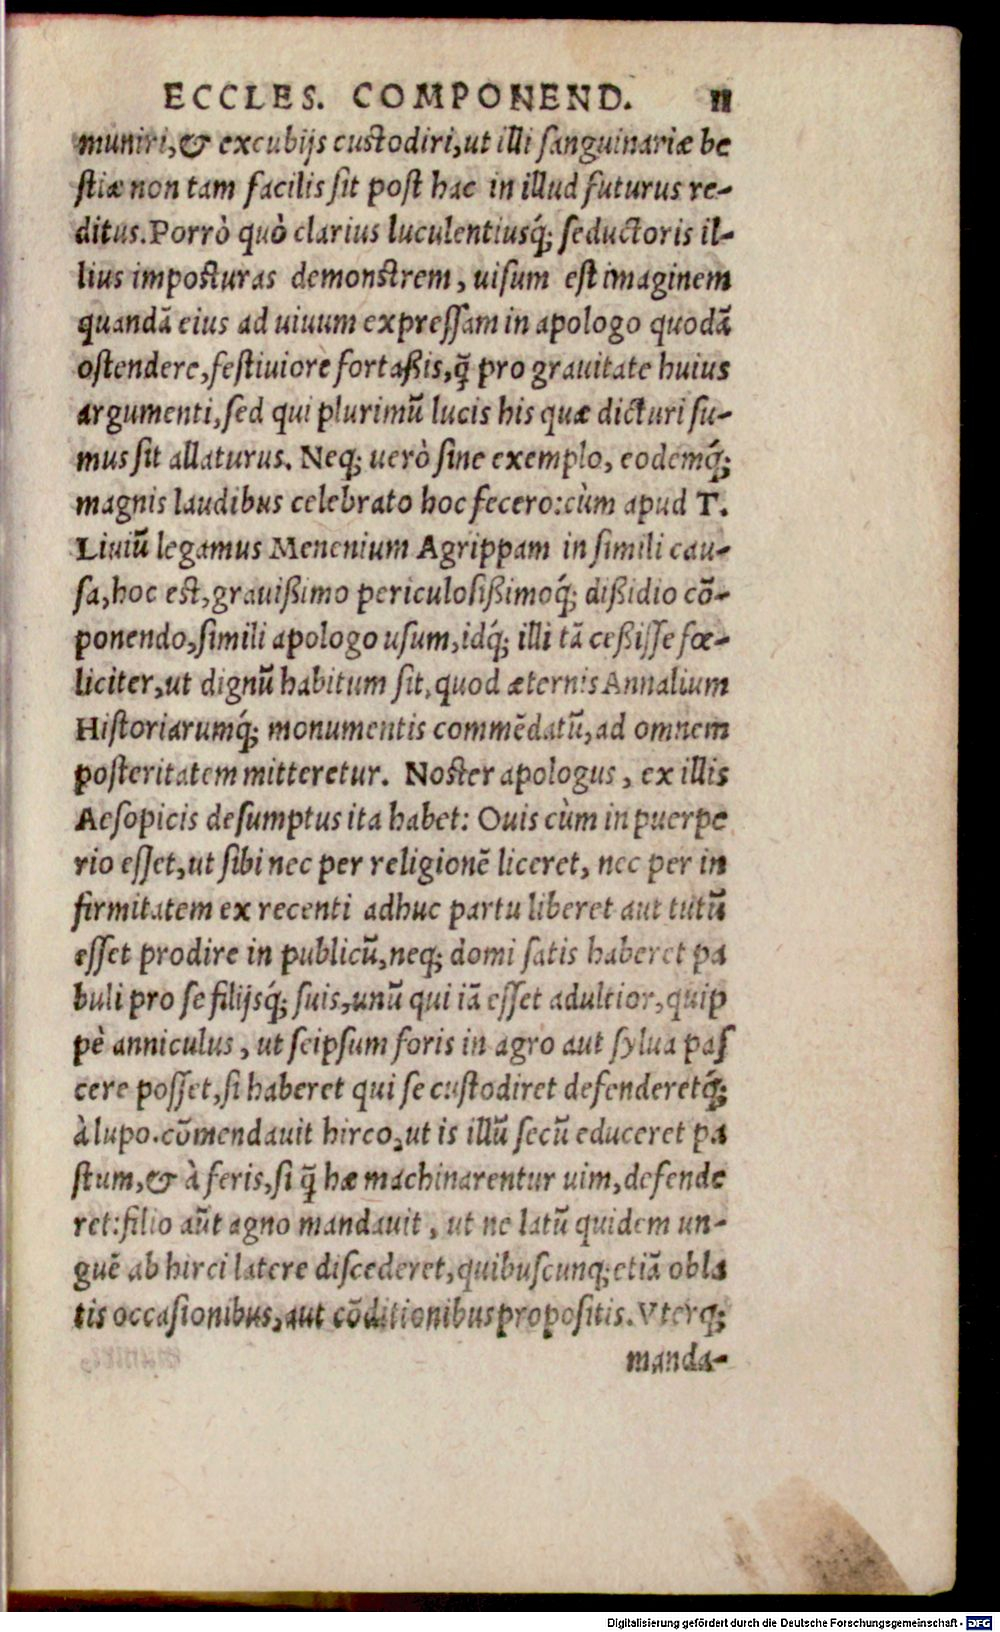 ECCLES. COMPONEND. 11
muniri,& excubijs custodiri,ut illi sanguinariæ be
stiæ non tam facilis sit post hac in illud futurus re-
ditus.Porrò quò clarius luculentiusq́; seductoris il-
lius imposturas demonstrem, uisum est imaginem
quandā eius ad uiuum expressam in apologo quodā
ostendere,festiuiore fortaßis,q̄ pro grauitate huius
argumenti,sed qui plurimū lucis his quæ dicturi su-
mus sit allaturus. Neq; uerò sine exemplo, eodemq́;
magnis laudibus celebrato hoc fecero:cùm apud T.
Liuiū legamus Menenium Agrippam in simili cau-
sa,hoc est,grauißimo periculosißimoq́; dißidio cō-
ponendo,simili apologo usum,idq́; illi tā ceßisse fœ-
liciter,ut dignū habitum sit,quod æternis Annalium
Historiarumq́; monumentis commēdatū,ad omnem
posteritatem mitteretur. Noster apologus, ex illis
Aesopicis desumptus ita habet: Ouis cùm in puerpe
rio esset,ut sibi nec per religionē liceret, nec per in
firmitatem ex recenti adhuc partu liberet aut tutū
esset prodire in publicū,neq; domi satis haberet pa
buli pro se filijsq́; suis,unū qui iā esset adultior,quip
pè anniculus, ut seipsum foris in agro aut sylua pas
cere posset,si haberet qui se custodiret defenderetq́;
à lupo.cōmendauit hirco,ut is illū secū educeret pa
stum,& à feris,si q̄ hæ machinarentur uim,defende
ret:filio aūt agno mandauit, ut ne latū quidem un-
guē ab hirci latere discederet,quibuscunq;etiā obla
tis occasionibus,aut cōditionibus propositis. Vterq;
manda-
Digitalisierung gefördert durch die Deutsche Forschungsgemeinschaft - DFG